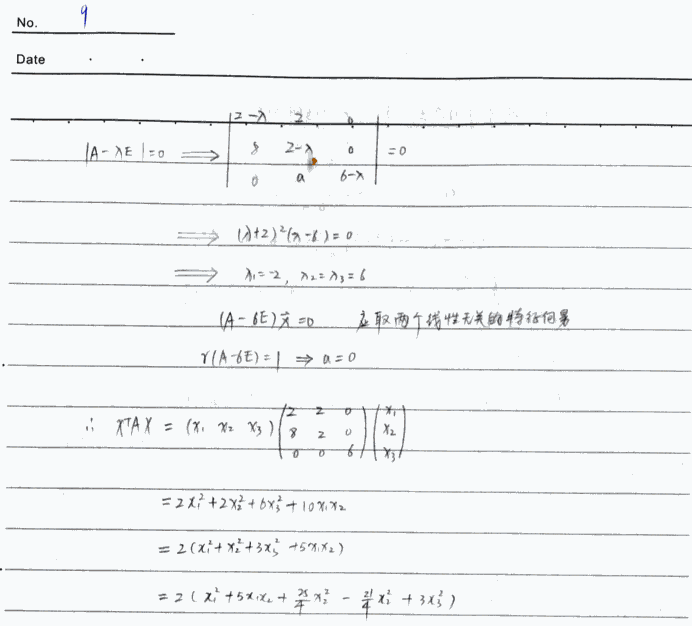 No. 9
Date . .
|A-λE|=0 ⟹ | 2-λ 2 0
8 2-λ 0
0 a 6-λ | =0
⟹ (λ+2)²(λ-6)=0
⟹ λ₁=-2, λ₂=λ₃=6
(A-6E)x⃗=0 应取两个线性无关的特征向量
r(A-6E)=1 ⟹ a=0
∴ XᵀAX = (x₁ x₂ x₃) ( 2 2 0
8 2 0
0 0 6 ) ( x₁
x₂
x₃ )
= 2x₁²+2x₂²+6x₃²+10x₁x₂
= 2(x₁²+x₂²+3x₃²+5x₁x₂)
= 2(x₁²+5x₁x₂+25/4 x₂² - 21/4 x₂² + 3x₃²)